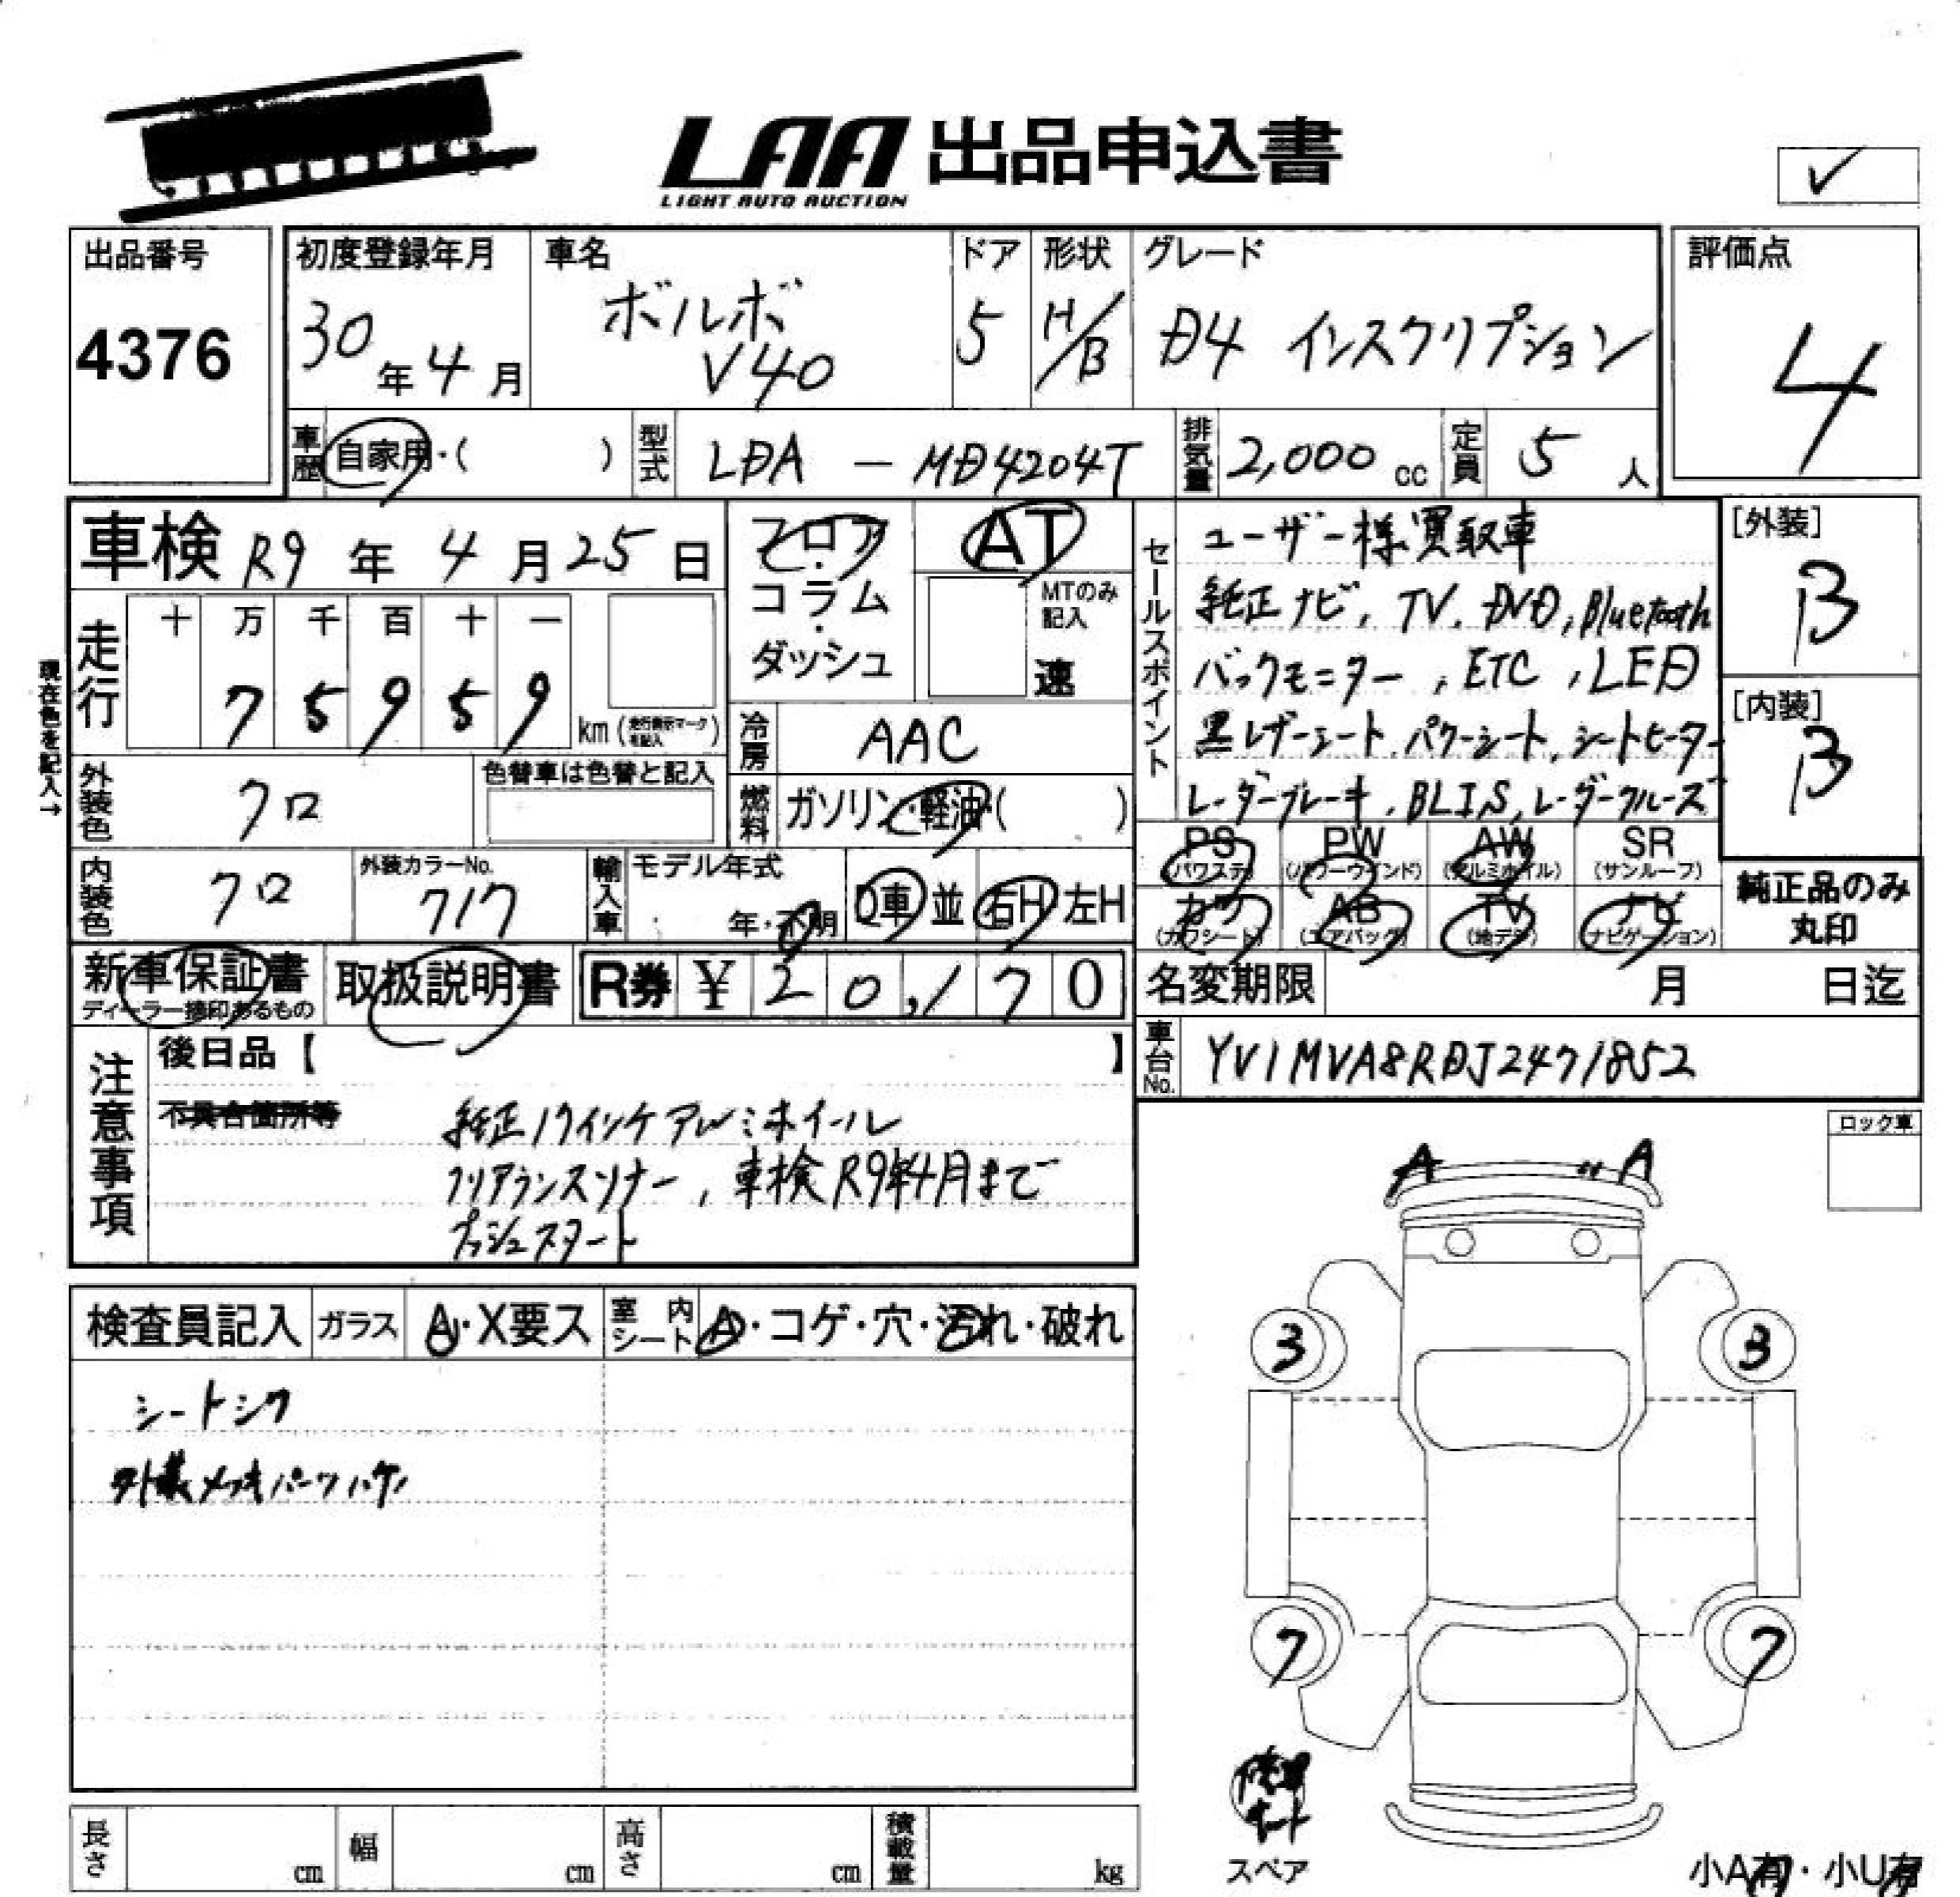 LAA 出品申込書
LIGHT AUTO AUCTION
✓
出品番号
4376
初度登録年月
30年4月
車名
ボルボ
V40
ドア
5
形状
H/B
グレード
D4 インスクリプション
評価点
4
車歴
自家用・( )
型式
LDA - MD4204T
排気量
2,000 cc
定員
5 人
車検 R9年 4月25日
フロア
・
コラム
・
ダッシュ
AT
MTのみ
記入
速
セールスポイント
ユーザー様買取車
純正ナビ, TV, DVD, Bluetooth
バックモニター, ETC, LED
黒レザーシート, パワーシート, シートヒーター
レーダーブレーキ, BLIS, レーダークルーズ
[外装]
B
[内装]
B
現在色を記入→
走行
十 万 千 百 十 一
7 5 9 5 9
km (走行表示マーク
を記入)
冷房
AAC
外装色
クロ
色替車は色替と記入
燃料
ガソリン・軽油・( )
PS
(パワステ)
PW
(パワーウインド)
AW
(アルミホイル)
SR
(サンルーフ)
内装色
クロ
外装カラーNo.
717
輸入車
モデル年式
年・不明
D車 並
右H 左H
カワ
(カワシート)
AB
(エアバッグ)
TV
(地デジ)
ナビ
(ナビゲーション)
純正品のみ
丸印
新車保証書
ディーラー捺印あるもの
取扱説明書
R券 ¥ 20,170
名変期限 月 日迄
車台No.
YV1MVA8RDJ2471852
注意事項
後日品【 】
不具合箇所等
純正17インチアルミホイール
クリアランスソナー, 車検R9年4月まで
プッシュスタート
ロック車
A 〃 A
検査員記入
ガラス
A・X要ス
室内
シート
A・コゲ・穴・汚れ・破れ
シートシワ
外装メッキパーツハゲ
3 3
7 7
スペア
小A有・小U有
長さ cm
幅 cm
高さ cm
積載量 kg